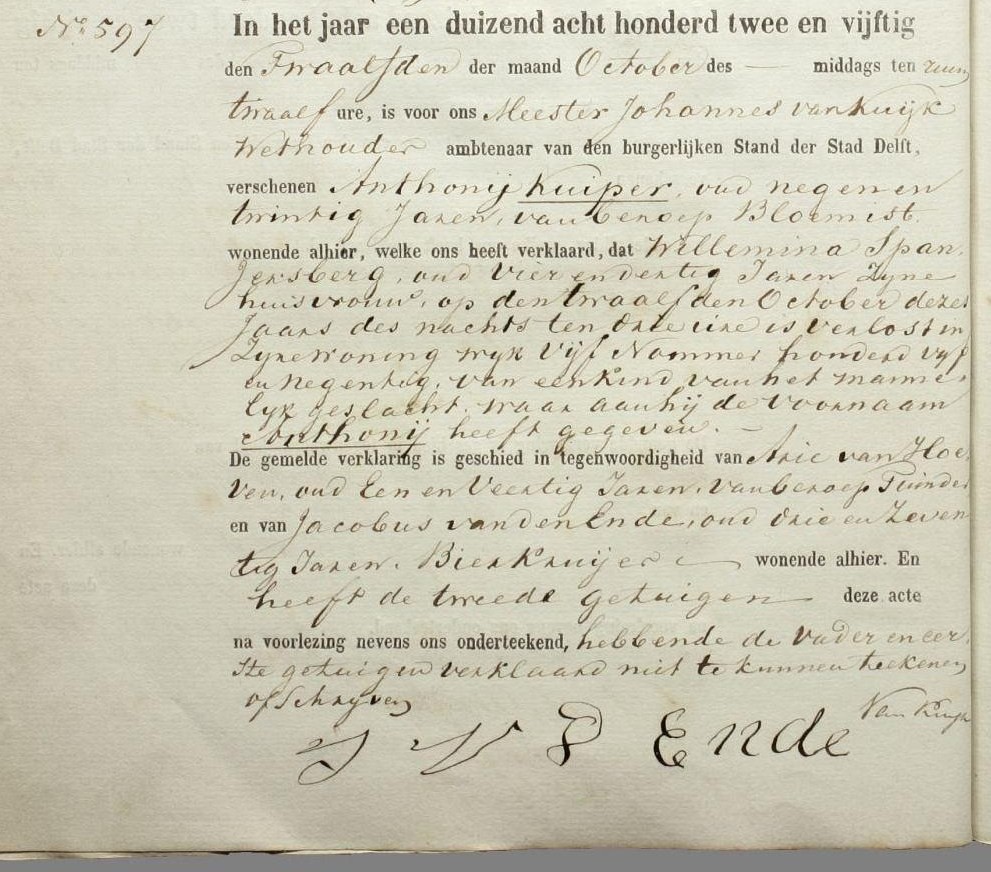 No. 597
In het jaar een duizend acht honderd twee en vijftig
den Twaalfden der maand October des — middags ten ruim
twaalf ure, is voor ons Meester Johannes van Kuijk
Wethouder ambtenaar van den burgerlijken Stand der Stad Delft,
verschenen Anthonij Kuiper, oud negen en
twintig Jaren, van beroep Bloemist.
wonende alhier, welke ons heeft verklaard, dat Willemina Span-
jersberg, oud vier en dertig Jaren Zyne
huisvrouw, op den twaalfden October dezes
Jaars des nachts ten drie ure is verlost in
Zyne woning wyk Vijf Nommer honderd vyf
en negentig, van een Kind van het manne-
lyk geslacht, waar aan hij de voornaam
Anthonij heeft gegeven. —
De gemelde verklaring is geschied in tegenwoordigheid van Arie van Hoe-
ven, oud Een en Veertig Jaren, van beroep Tuinder
en van Jacobus van den Ende, oud drie en Zeven-
tig Jaren. Bierkruijer wonende alhier. En
heeft de tweede getuigen deze acte
na voorlezing nevens ons onderteekend, hebbende de Vader en eer-
ste getuigen verklaard niet te kunnen teekenen
of Schryven
Van Kuyk
J V D Ende